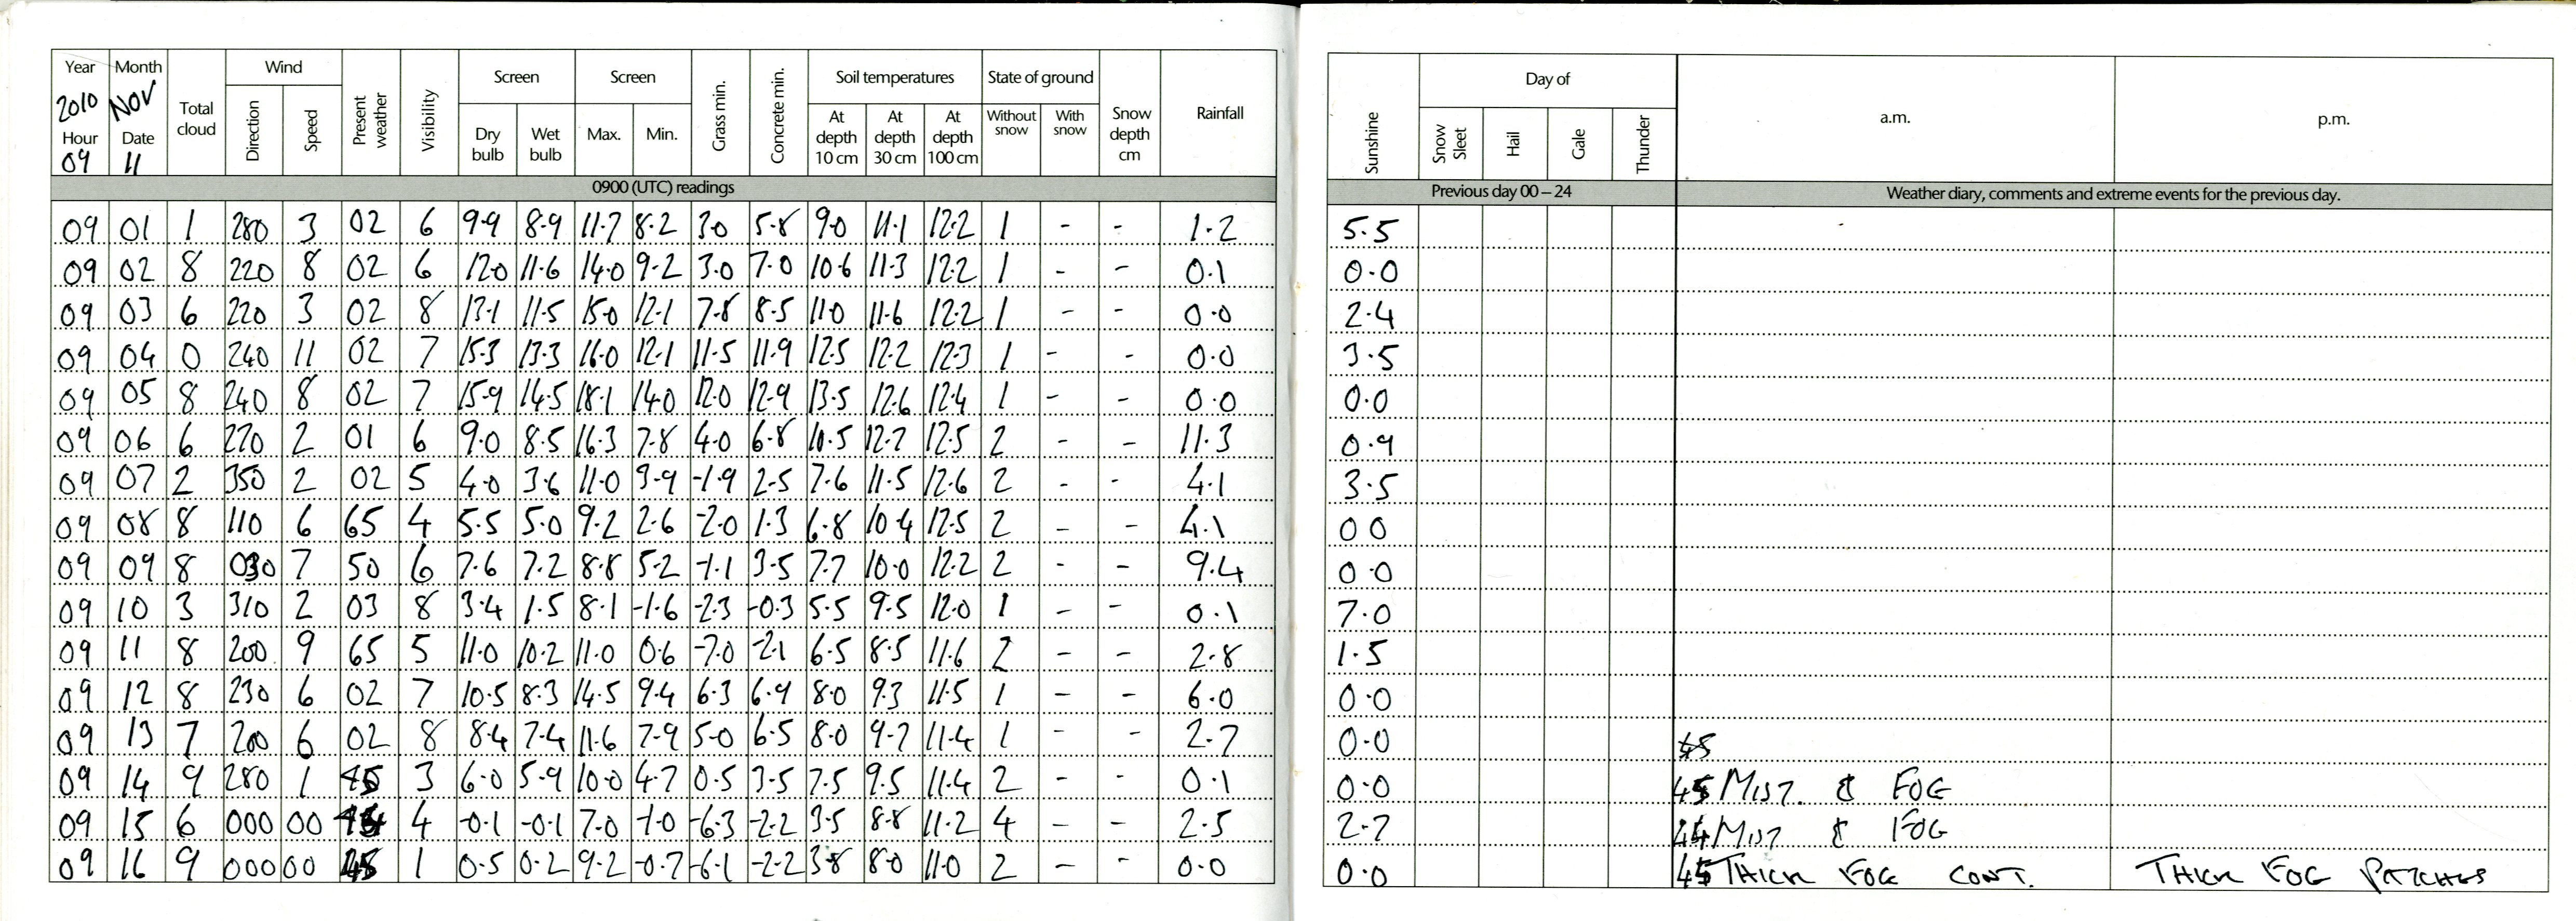 Year Month Total cloud Wind Direction Speed Present weather Visibility Screen Dry bulb Wet bulb Screen Max. Min. Grass min. Concrete min. Soil temperatures At depth 10 cm At depth 30 cm At depth 100 cm State of ground Without snow With snow Snow depth cm Rainfall Sunshine Day of Snow Sleet Hail Gale Thunder a.m. p.m.
2010 NOV
Hour Date
09 11
0900 (UTC) readings Previous day 00 – 24 Weather diary, comments and extreme events for the previous day.
09 01 1 280 3 02 6 9.9 8.9 11.7 8.2 3.0 5.8 9.0 11.1 12.2 1 - - 1.2 5.5
09 02 8 220 8 02 6 12.0 11.6 14.0 9.2 3.0 7.0 10.6 11.3 12.2 1 - - 0.1 0.0
09 03 6 220 3 02 8 13.1 11.5 15.0 12.1 7.8 8.5 11.0 11.6 12.2 1 - - 0.0 2.4
09 04 0 240 11 02 7 15.3 13.3 16.0 12.1 11.5 11.9 12.5 12.2 12.3 1 - - 0.0 3.5
09 05 8 240 8 02 7 15.9 14.5 18.1 14.0 12.0 12.9 13.5 12.6 12.4 1 - - 0.0 0.0
09 06 6 270 2 01 6 9.0 8.5 16.3 7.8 4.0 6.8 10.5 12.7 12.5 2 - - 11.3 0.9
09 07 2 350 2 02 5 4.0 3.6 11.0 3.9 -1.9 2.5 7.6 11.5 12.6 2 - - 4.1 3.5
09 08 8 110 6 65 4 5.5 5.0 9.2 2.6 -2.0 1.3 6.8 10.4 12.5 2 - - 4.1 0 0
09 09 8 030 7 50 6 7.6 7.2 8.8 5.2 -1.1 3.5 7.7 10.0 12.2 2 - - 9.4 0.0
09 10 3 310 2 03 8 3.4 1.5 8.1 -1.6 -2.3 -0.3 5.5 9.5 12.0 1 - - 0.1 7.0
09 11 8 200 9 65 5 11.0 10.2 11.0 0.6 -7.0 -2.1 6.5 8.5 11.6 2 - - 2.8 1.5
09 12 8 230 6 02 7 10.5 8.3 14.5 9.4 6.3 6.9 8.0 9.3 11.5 1 - - 6.0 0.0
09 13 7 200 6 02 8 8.4 7.4 11.6 7.9 5.0 6.5 8.0 9.7 11.4 1 - - 2.7 0.0 45
09 14 9 280 1 45 3 6.0 5.9 10.0 4.7 0.5 3.5 7.5 9.5 11.4 2 - - 0.1 0.0 45 MIST. & FOG
09 15 6 000 00 4 -0.1 -0.1 7.0 -1.0 -6.3 -2.2 3.5 8.8 11.2 4 - - 2.5 2.7 44 MIST & FOG
09 16 9 000 00 45 1 0.5 0.2 9.2 -0.7 -6.1 -2.2 3.8 8.0 11.0 2 - - 0.0 0.0 45 THICK FOG CONT. THICK FOG PATCHES